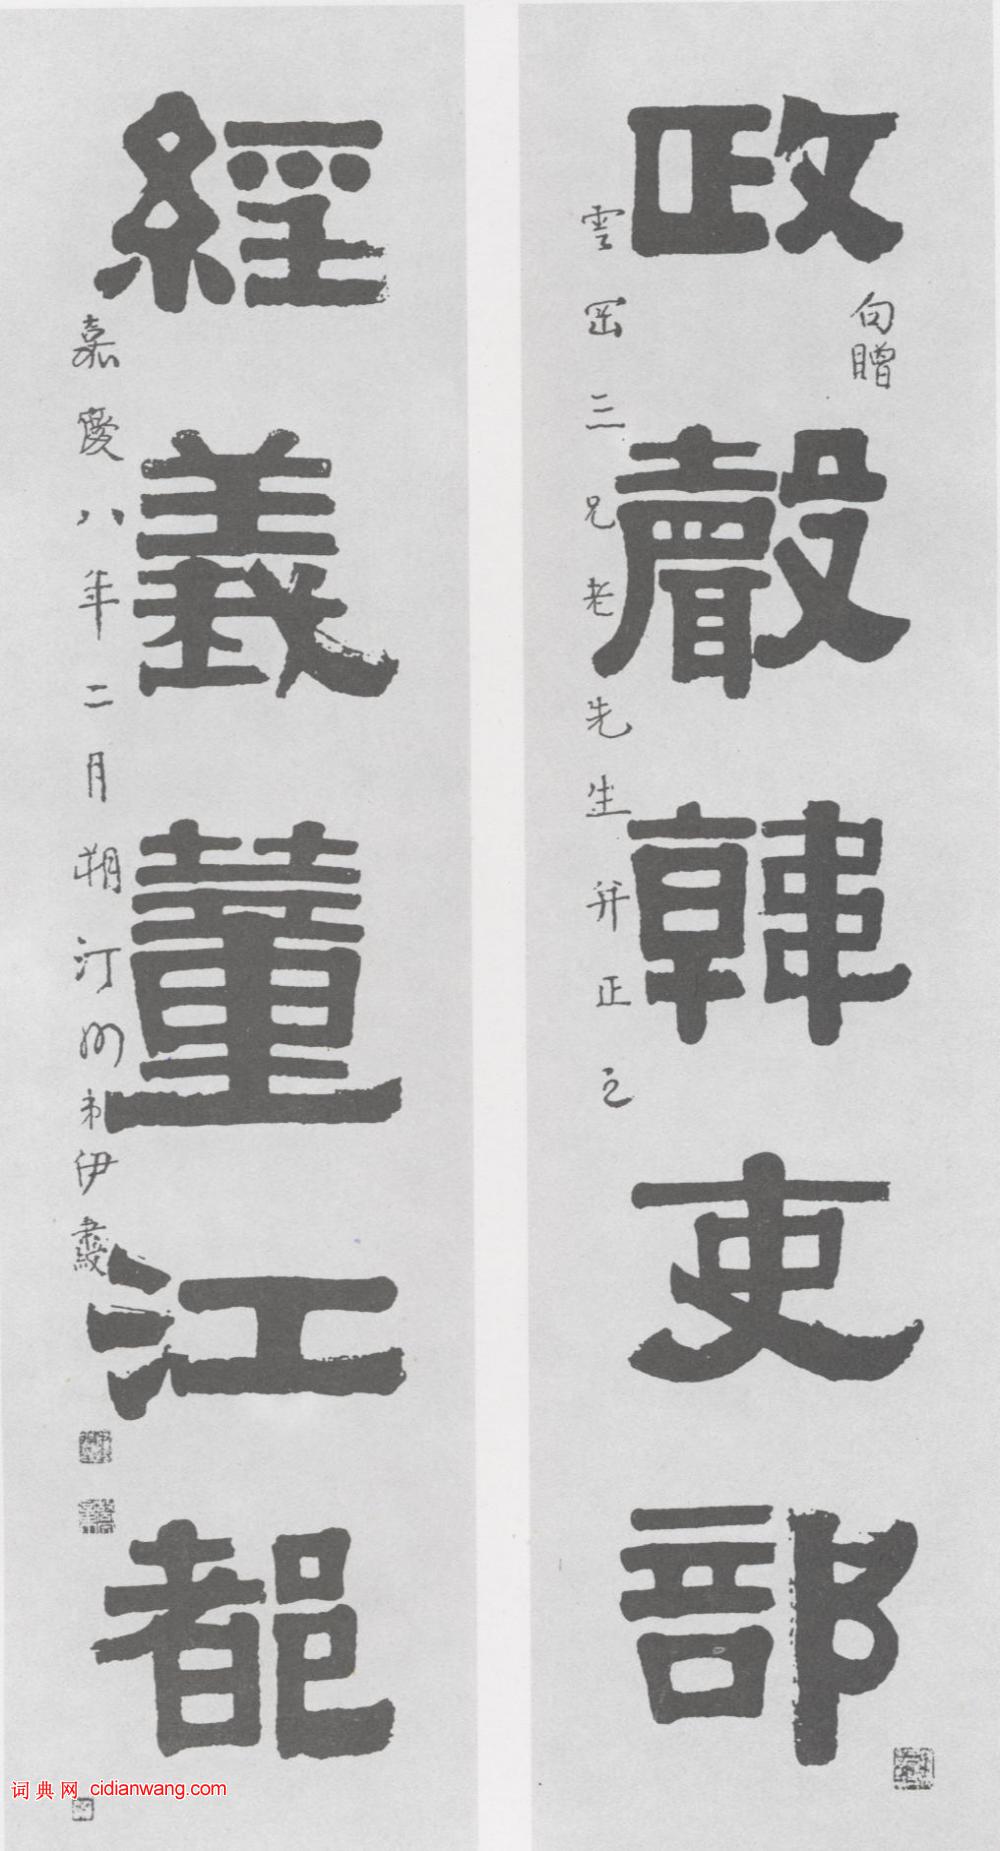 政聲韓吏部
句贈
雲岡三兄老先生并正之
經義董江都
嘉慶八年二月朔汀州弟伊秉綬
词典网 cidianwang.com